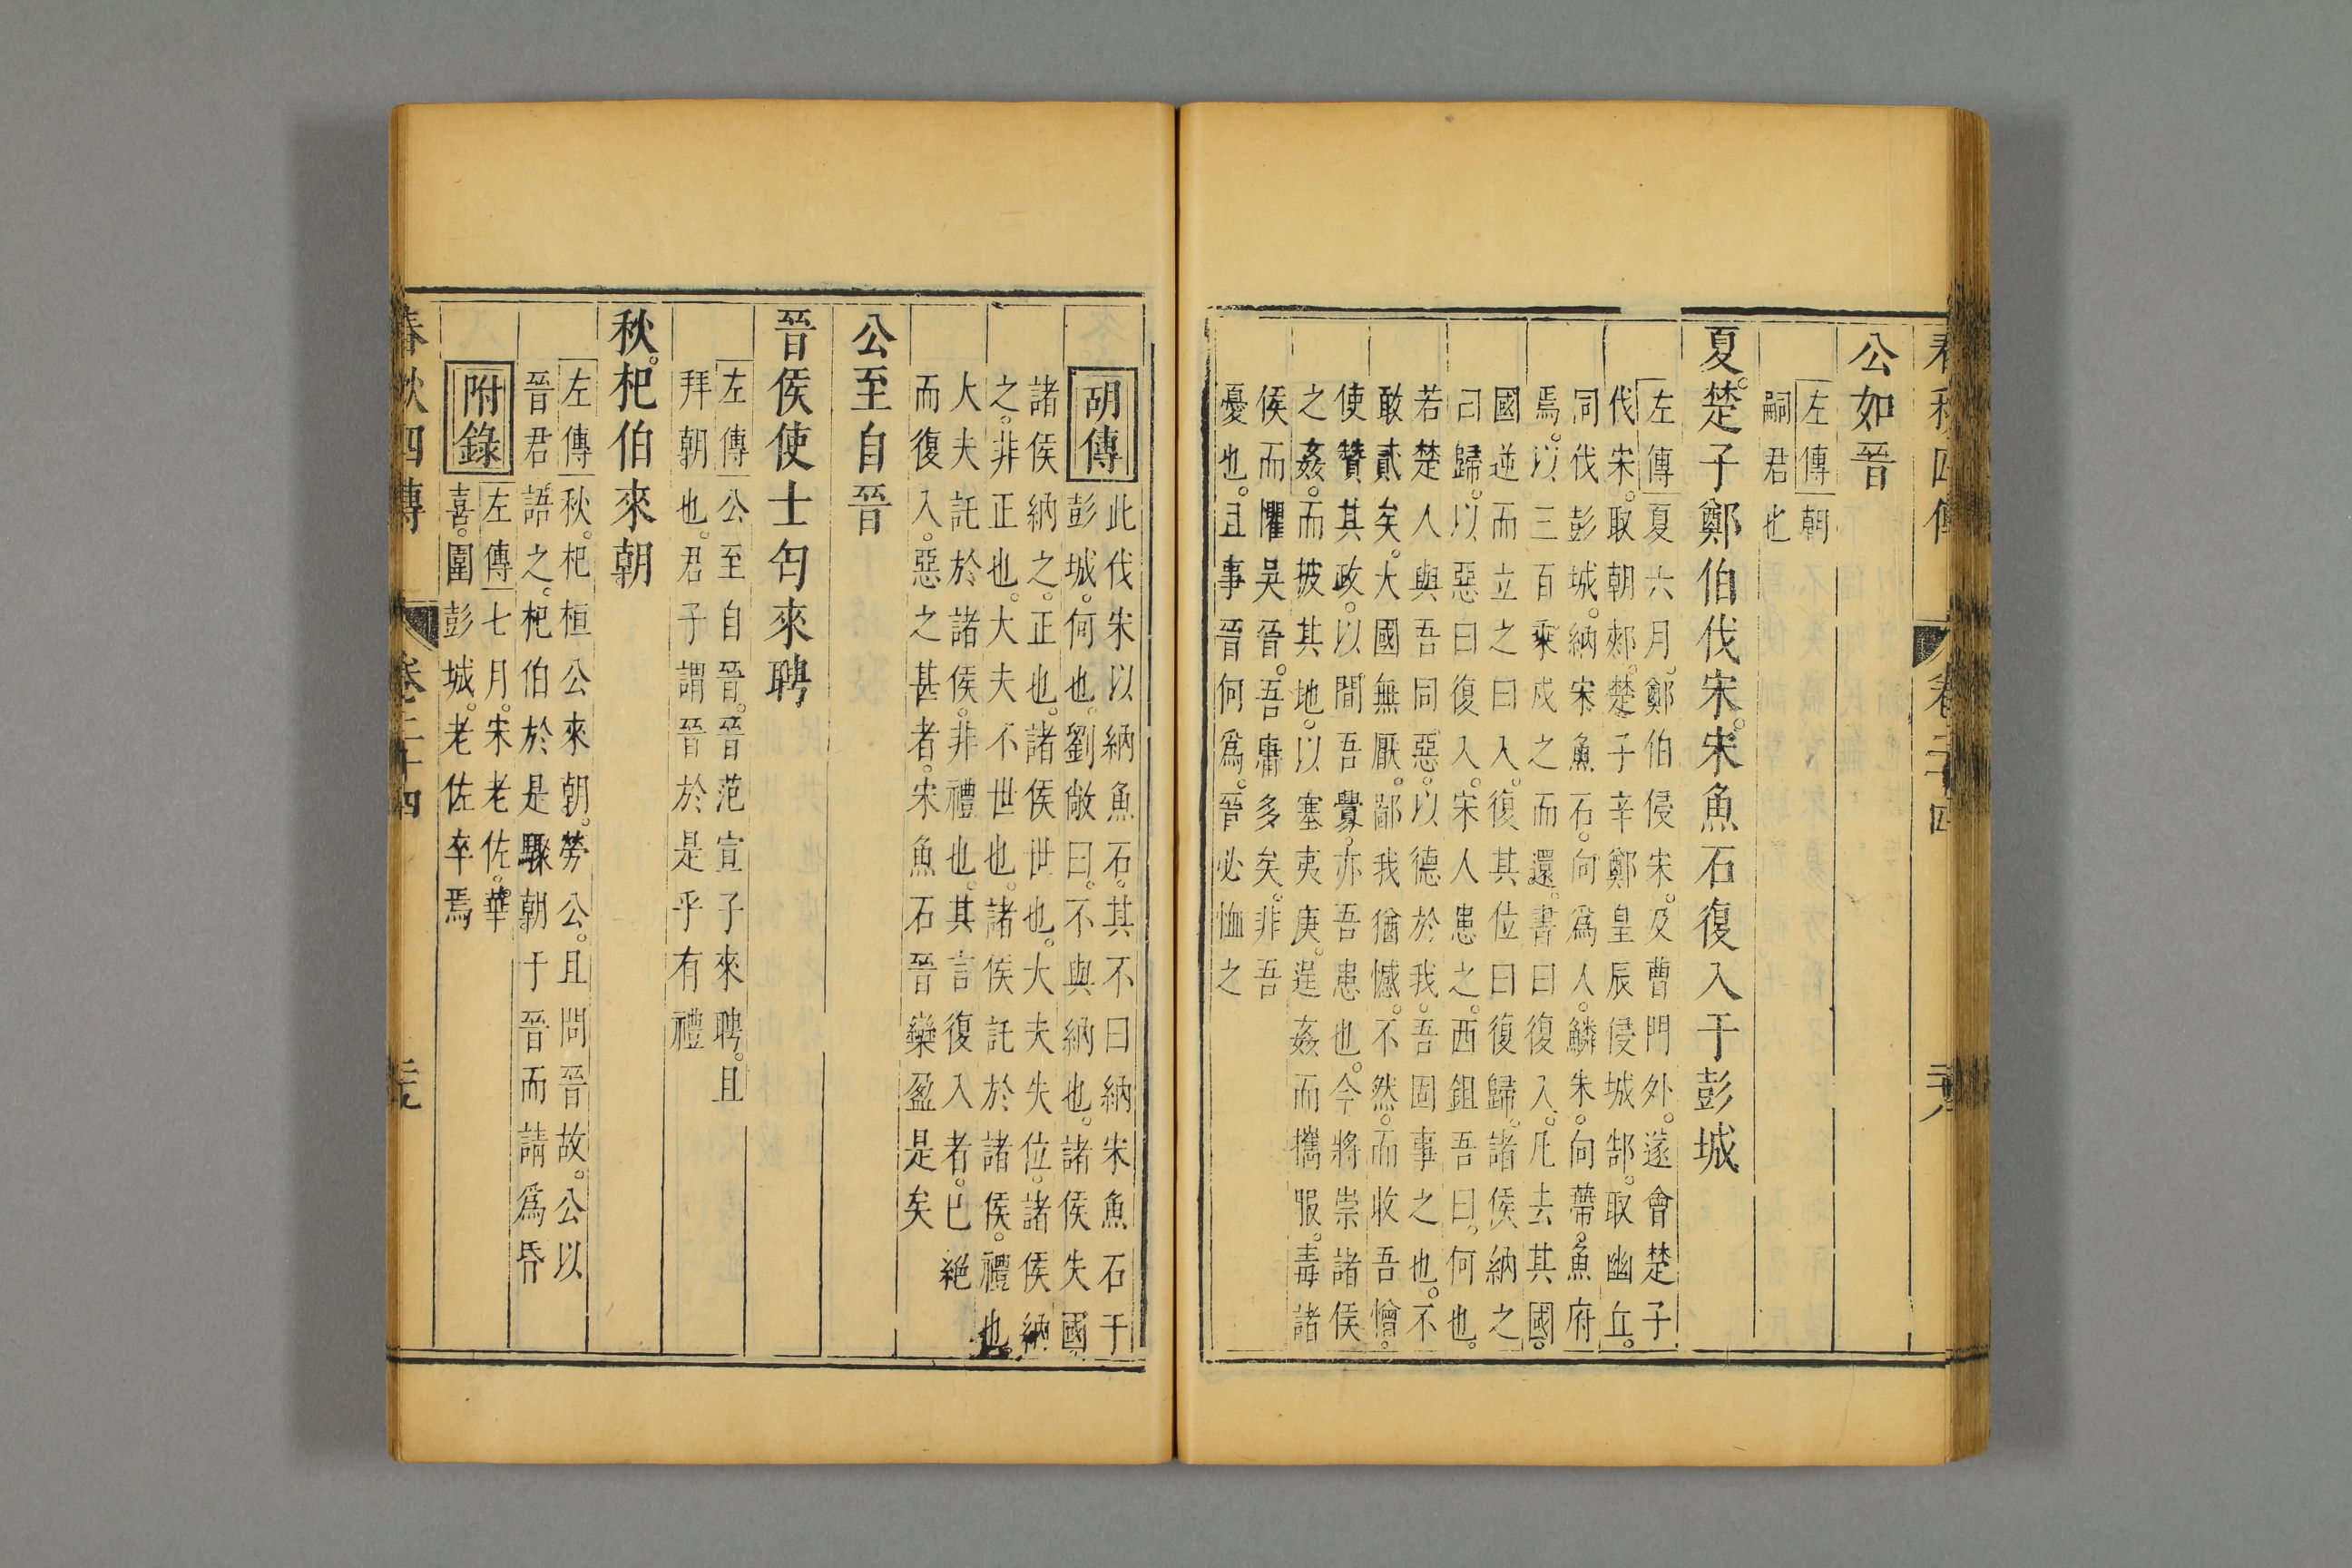 春秋四傳 卷二十四 二十八
公如晉
左傳朝
嗣君也
夏。楚子鄭伯伐宋。宋魚石復入于彭城
左傳夏六月。鄭伯侵宋。及曹門外。遂會楚子
伐宋。取朝郟。楚子辛鄭皇辰侵城郜。取幽丘。
同伐彭城。納宋魚石。向爲人。鱗朱。向帶。魚府
焉。以三百乘戍之而還。書曰復入。凡去其國。
國逆而立之曰入。復其位曰復歸。諸侯納之
曰歸。以惡曰復入。宋人患之。西鉏吾曰。何也。
若楚人與吾同惡。以德於我。吾固事之也。不
敢貳矣。大國無厭。鄙我猶憾。不然。而收吾憎。
使贊其政。以間吾釁。亦吾患也。今將崇諸侯
之姦。而披其地。以塞夷庚。逞姦而攜服。毒諸
侯而懼吳晉。吾庸多矣。非吾
憂也。且事晉何爲。晉必恤之
胡傳此伐宋以納魚石。其不曰納宋魚石于
彭城。何也。劉敞曰。不與納也。諸侯失國
諸侯納之。正也。諸侯世也。大夫失位。諸侯納
之。非正也。大夫不世也。諸侯託於諸侯。禮也。
大夫託於諸侯。非禮也。其言復入者。已絕
而復入。惡之甚者。宋魚石晉欒盈是矣
公至自晉
晉侯使士匄來聘
左傳公至自晉。晉范宣子來聘。且
拜朝也。君子謂晉於是乎有禮
秋。杞伯來朝
左傳秋。杞桓公來朝。勞公。且問晉故。公以
晉君語之。杞伯於是驟朝于晉而請爲昏
附錄左傳七月。宋老佐。華
喜。圍彭城。老佐卒焉
春秋四傳 卷二十四 二十九